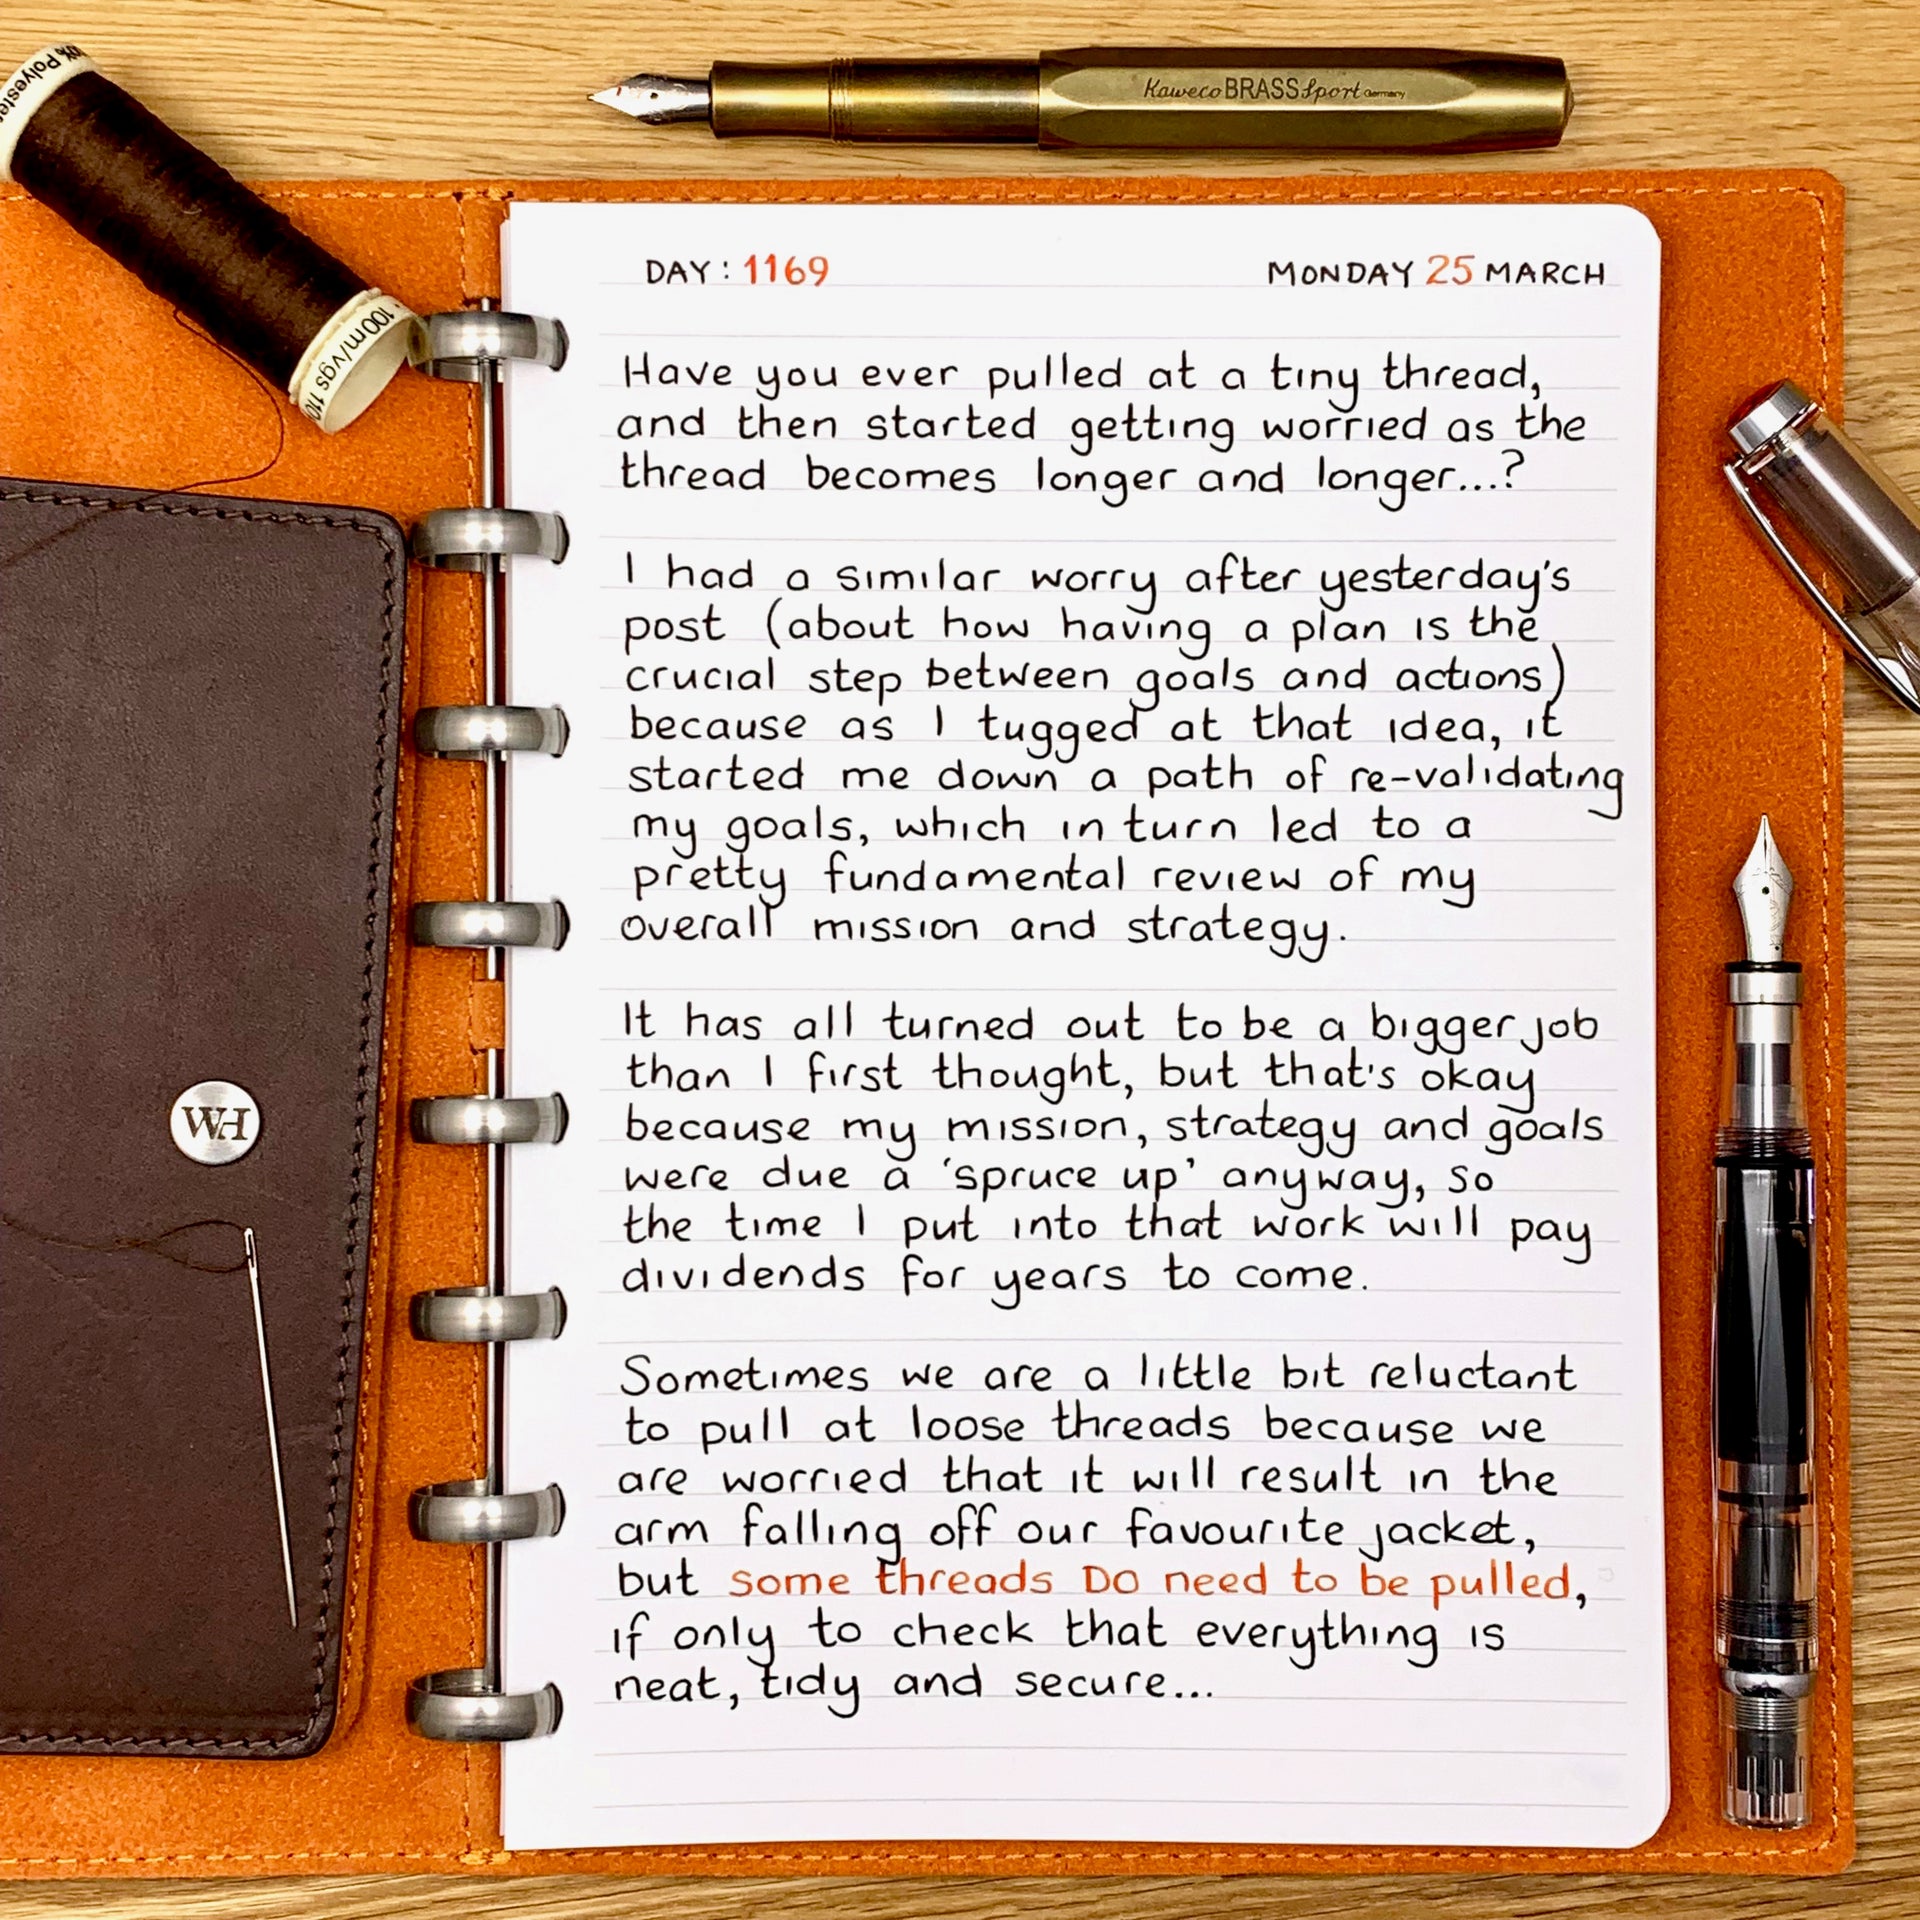 0% Polyester
100m/vgs 110
Kaweco BRASS Sport Germany
DAY: 1169
MONDAY 25 MARCH
Have you ever pulled at a tiny thread,
and then started getting worried as the
thread becomes longer and longer...?
I had a similar worry after yesterday's
post (about how having a plan is the
crucial step between goals and actions)
because as I tugged at that idea, it
started me down a path of re-validating
my goals, which in turn led to a
pretty fundamental review of my
overall mission and strategy.
It has all turned out to be a bigger job
than I first thought, but that's okay
because my mission, strategy and goals
were due a 'spruce up' anyway, so
the time I put into that work will pay
dividends for years to come.
Sometimes we are a little bit reluctant
to pull at loose threads because we
are worried that it will result in the
arm falling off our favourite jacket,
but some threads DO need to be pulled,
if only to check that everything is
neat, tidy and secure...
WH